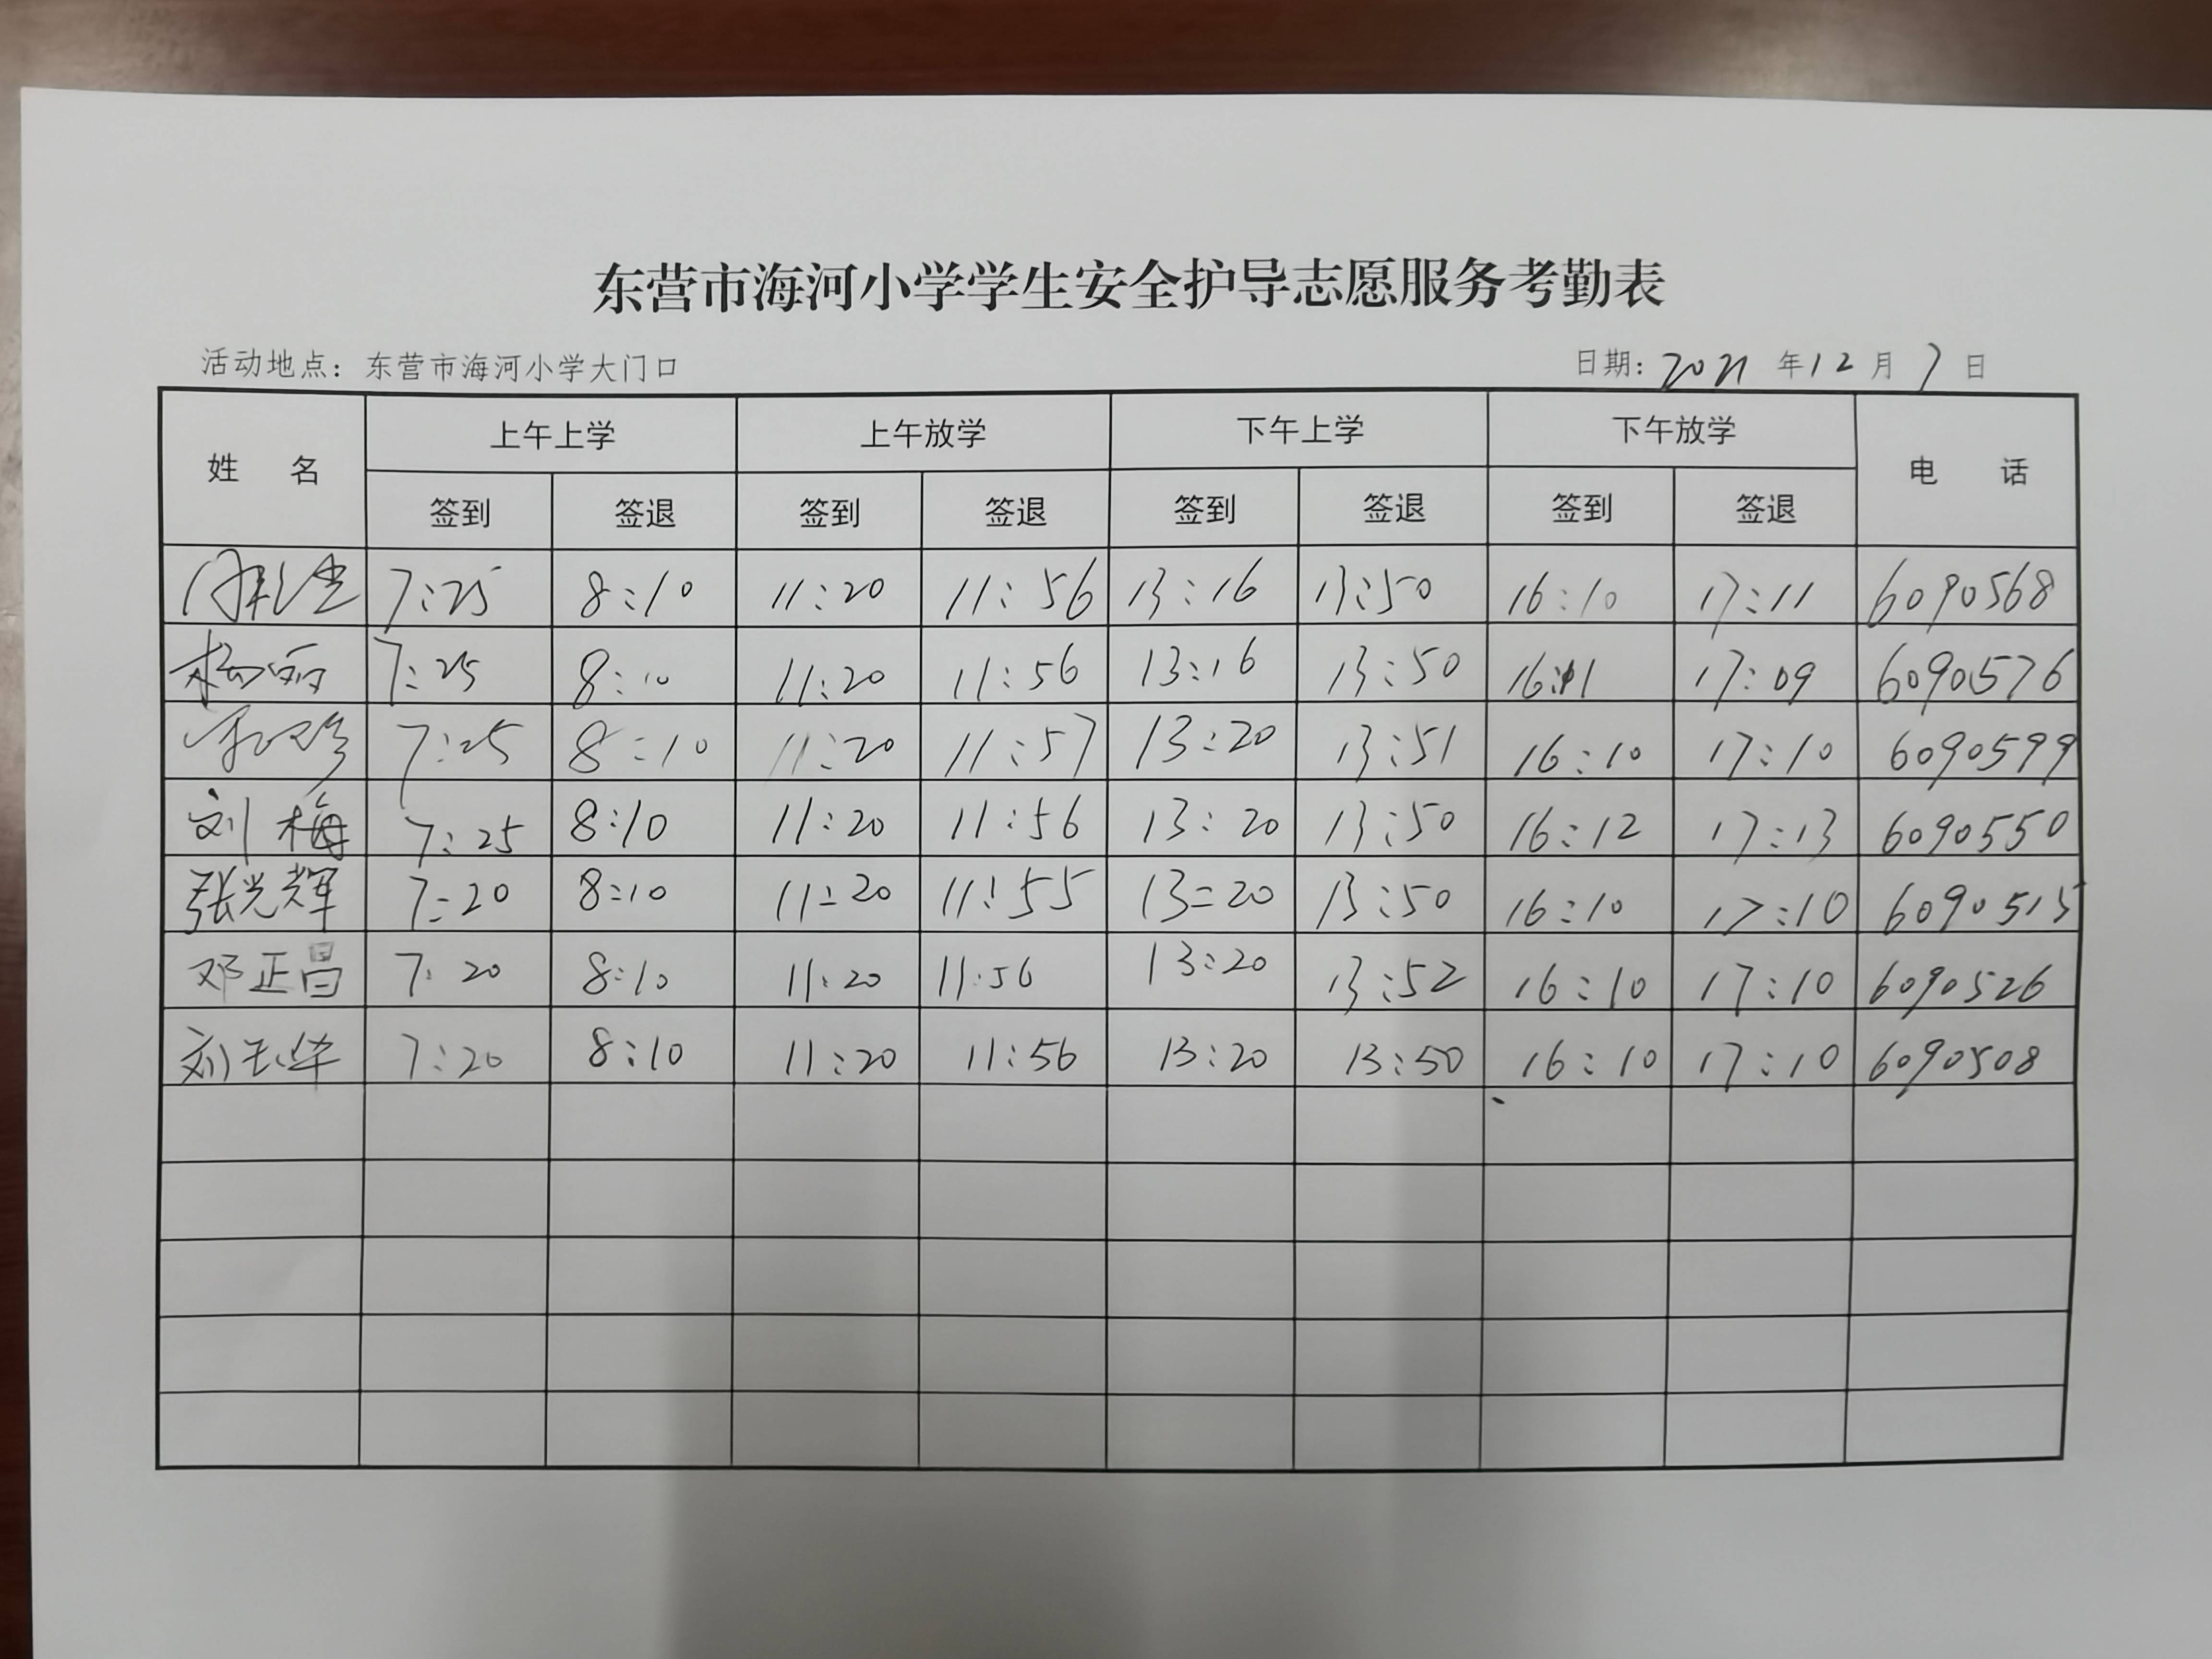 东营市海河小学学生安全护导志愿服务考勤表
活动地点：东营市海河小学大门口 日期：2021 年 12 月 7 日
姓 名 上午上学 上午放学 下午上学 下午放学 电 话
签到 签退 签到 签退 签到 签退 签到 签退
7:25 8:10 11:20 11:56 13:16 13:50 16:10 17:11 6090568
杨丽 7:25 8:10 11:20 11:56 13:16 13:50 16:11 17:09 6090576
7:25 8:10 11:20 11:57 13:20 13:51 16:10 17:10 6090599
刘梅 7:25 8:10 11:20 11:56 13:20 13:50 16:12 17:13 6090550
张光辉 7:20 8:10 11:20 11:55 13:20 13:50 16:10 17:10 6090515
邓正昌 7:20 8:10 11:20 11:56 13:20 13:52 16:10 17:10 6090526
刘玉华 7:20 8:10 11:20 11:56 13:20 13:50 16:10 17:10 6090508